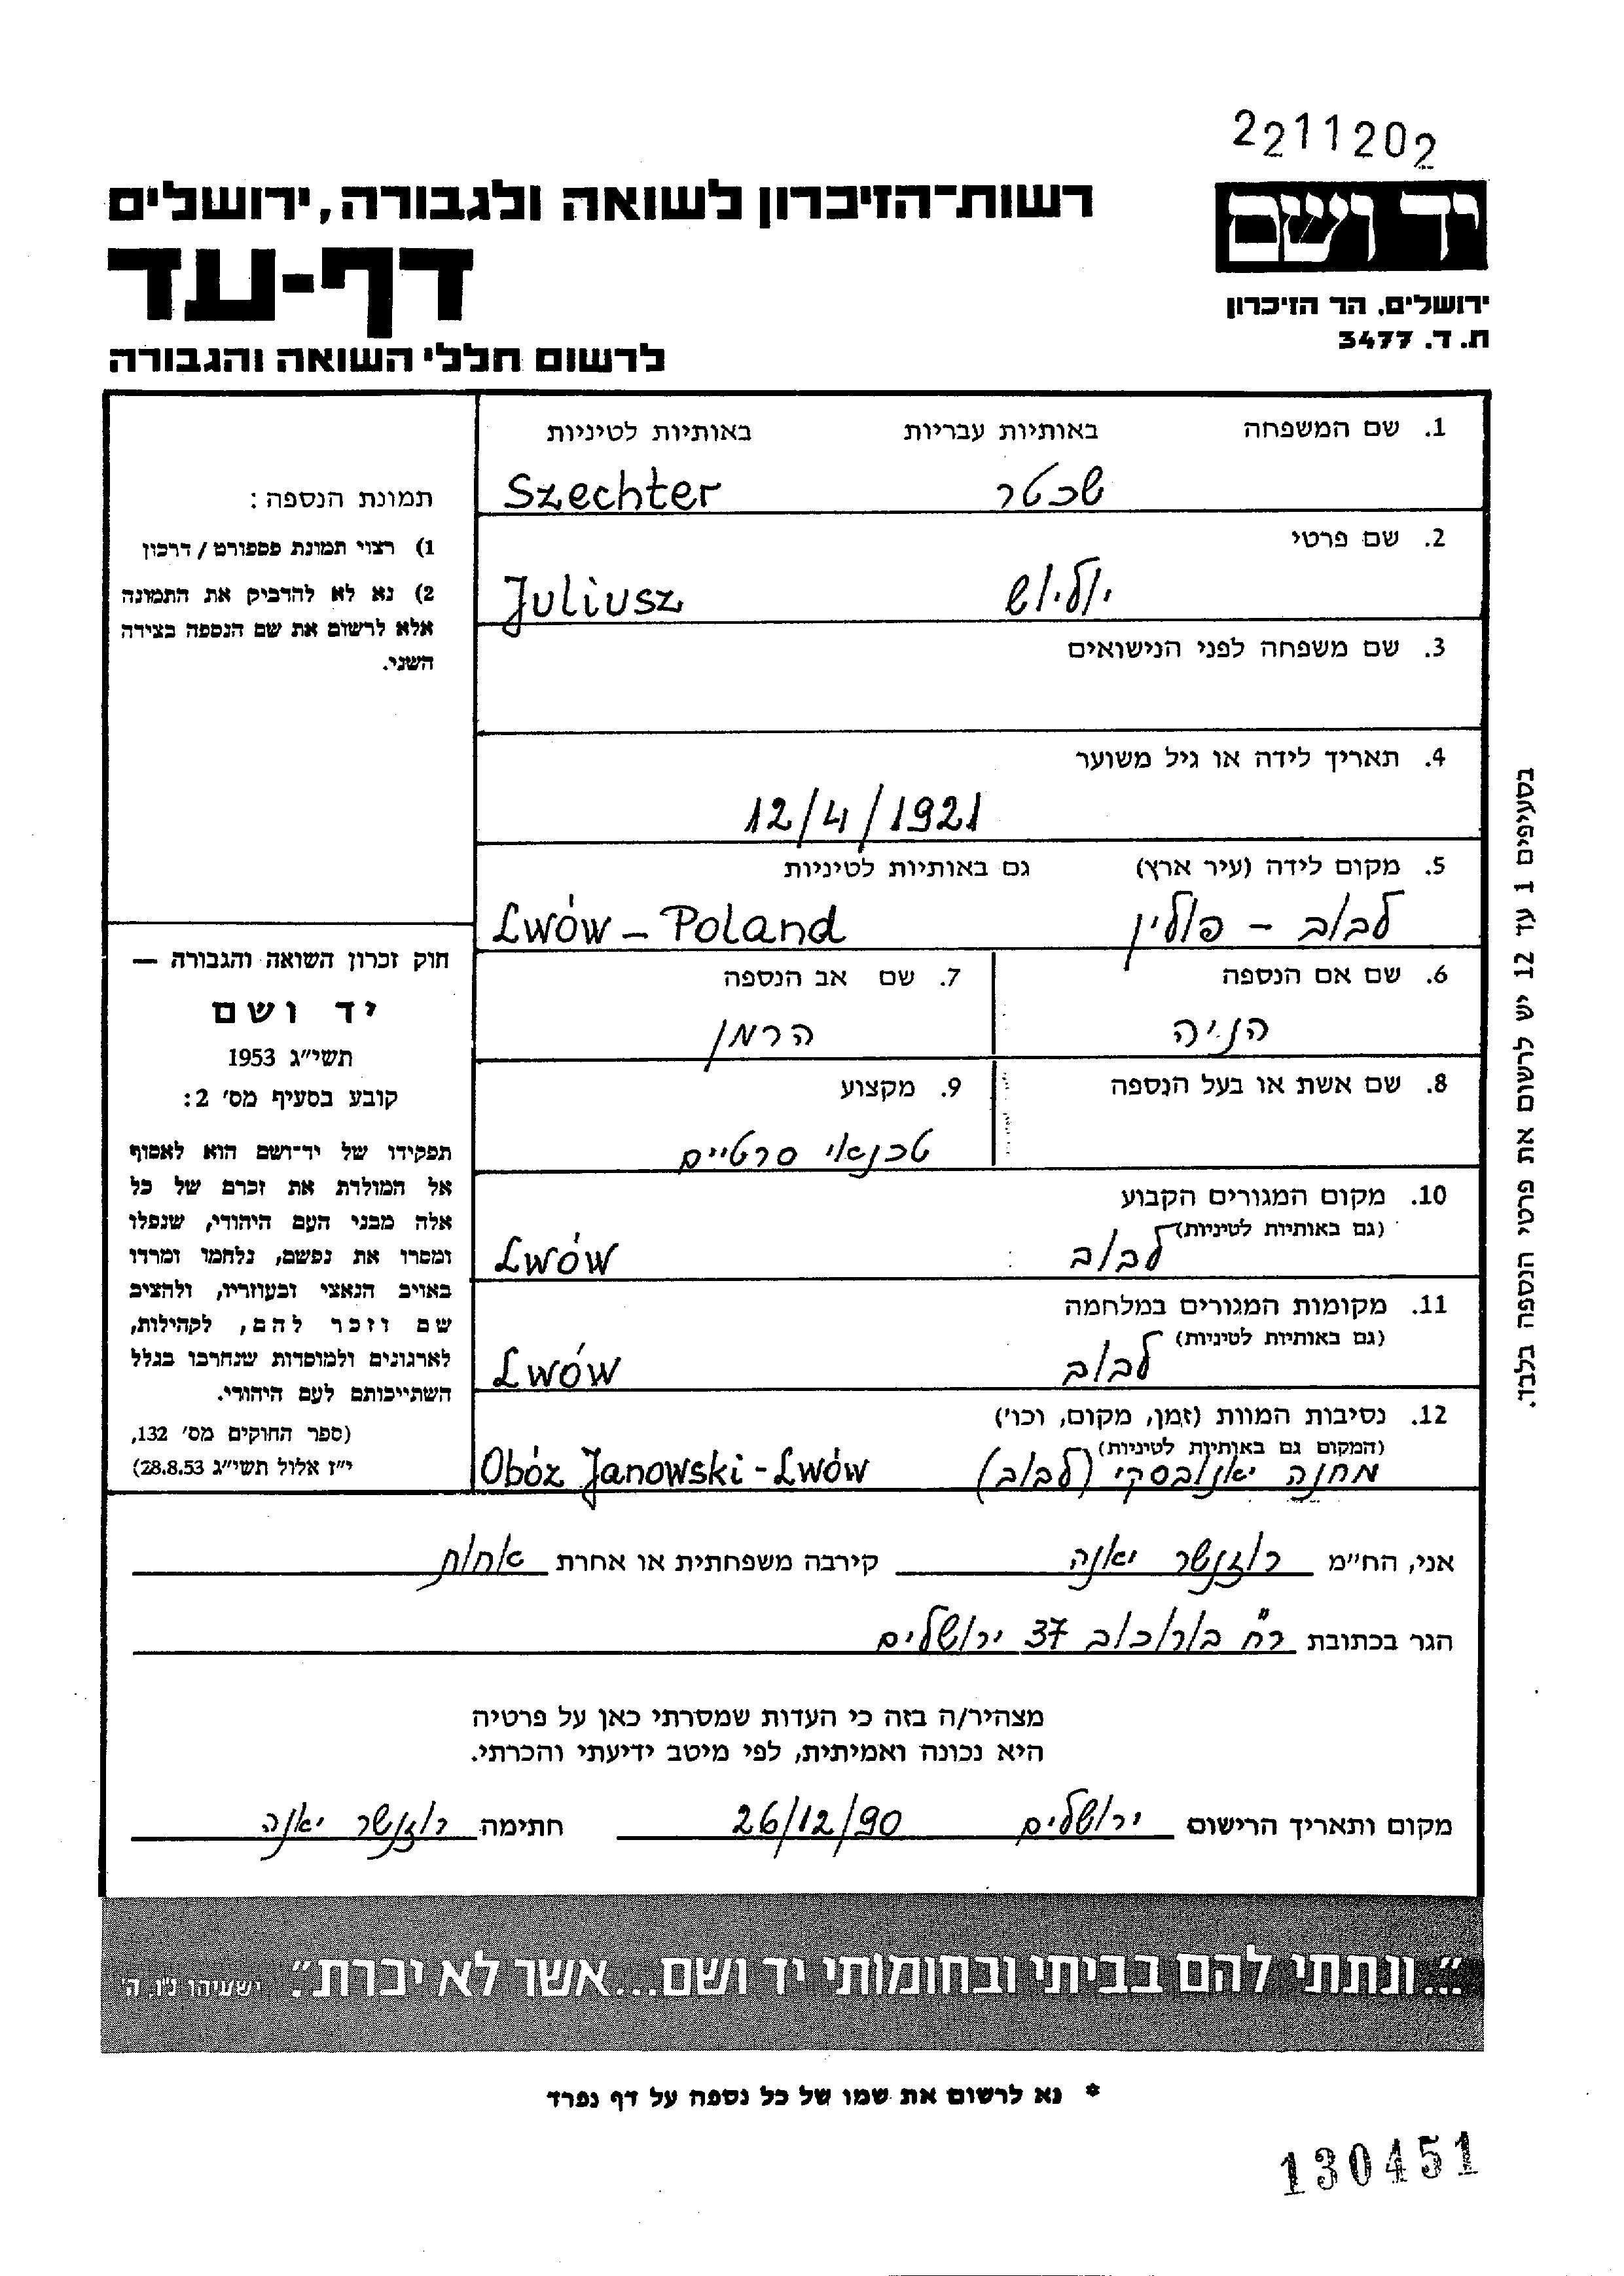 2211202
יד ושם
ירושלים, הר הזיכרון
ת. ד. 3477
רשות-הזיכרון לשואה ולגבורה, ירושלים
דף-עד
לרשום חללי השואה והגבורה
1. שם המשפחה באותיות עבריות באותיות לטיניות
שכטר Szechter
2. שם פרטי
יוליוש Juliusz
3. שם משפחה לפני הנישואים
4. תאריך לידה או גיל משוער
12/4/1921
5. מקום לידה (עיר ארץ) גם באותיות לטיניות
לבוב - פולין Lwów - Poland
6. שם אם הנספה 7. שם אב הנספה
הניה הרמן
8. שם אשת או בעל הנספה 9. מקצוע
טכנאי סרטיים
10. מקום המגורים הקבוע
(גם באותיות לטיניות)
לבוב Lwów
11. מקומות המגורים במלחמה
(גם באותיות לטיניות)
לבוב Lwów
12. נסיבות המוות (זמן, מקום, וכו')
(המקום גם באותיות לטיניות)
מחנה יאנובסקי (לבוב) Obóz Janowski - Lwów
תמונת הנספה:
1) רצוי תמונת פספורט / דרכון
2) נא לא להדביק את התמונה
אלא לרשום את שם הנספה בצידה
השני.
חוק זכרון השואה והגבורה —
יד ושם
תשי"ג 1953
קובע בסעיף מס' 2:
תפקידו של יד-ושם הוא לאסוף
אל המולדת את זכרם של כל
אלה מבני העם היהודי, שנפלו
ומסרו את נפשם, נלחמו ומרדו
באויב הנאצי ובעוזריו, ולהציב
שם וזכר להם, לקהילות,
לארגונים ולמוסדות שנחרבו בגלל
השתייכותם לעם היהודי.
(ספר החוקים מס' 132,
י"ז אלול תשי"ג 28.8.53)
בסעיפים 1 עד 12 יש לרשום את פרטי הנספה בלבד.
אני, הח"מ רוזנשר יאנה קירבה משפחתית או אחרת אחות
הגר בכתובת רח' בורוכוב 37 ירושלים
מצהיר/ה בזה כי העדות שמסרתי כאן על פרטיה
היא נכונה ואמיתית, לפי מיטב ידיעתי והכרתי.
מקום ותאריך הרישום ירושלים 26/12/90 חתימה רוזנשר יאנה
"...ונתתי להם בביתי ובחומותי יד ושם...אשר לא יכרת". ישעיהו נ"ו, ה'
* נא לרשום את שמו של כל נספה על דף נפרד
130451